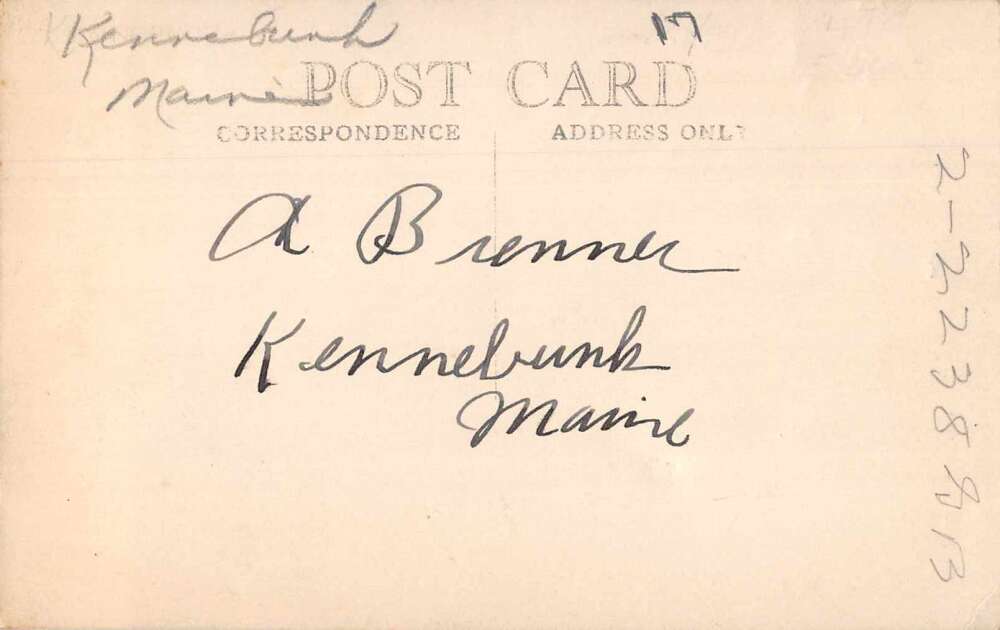 Kennebunk
17
Maine
POST CARD
CORRESPONDENCE ADDRESS ONLY
A Brenner
Kennebunk
Maine
2-2238